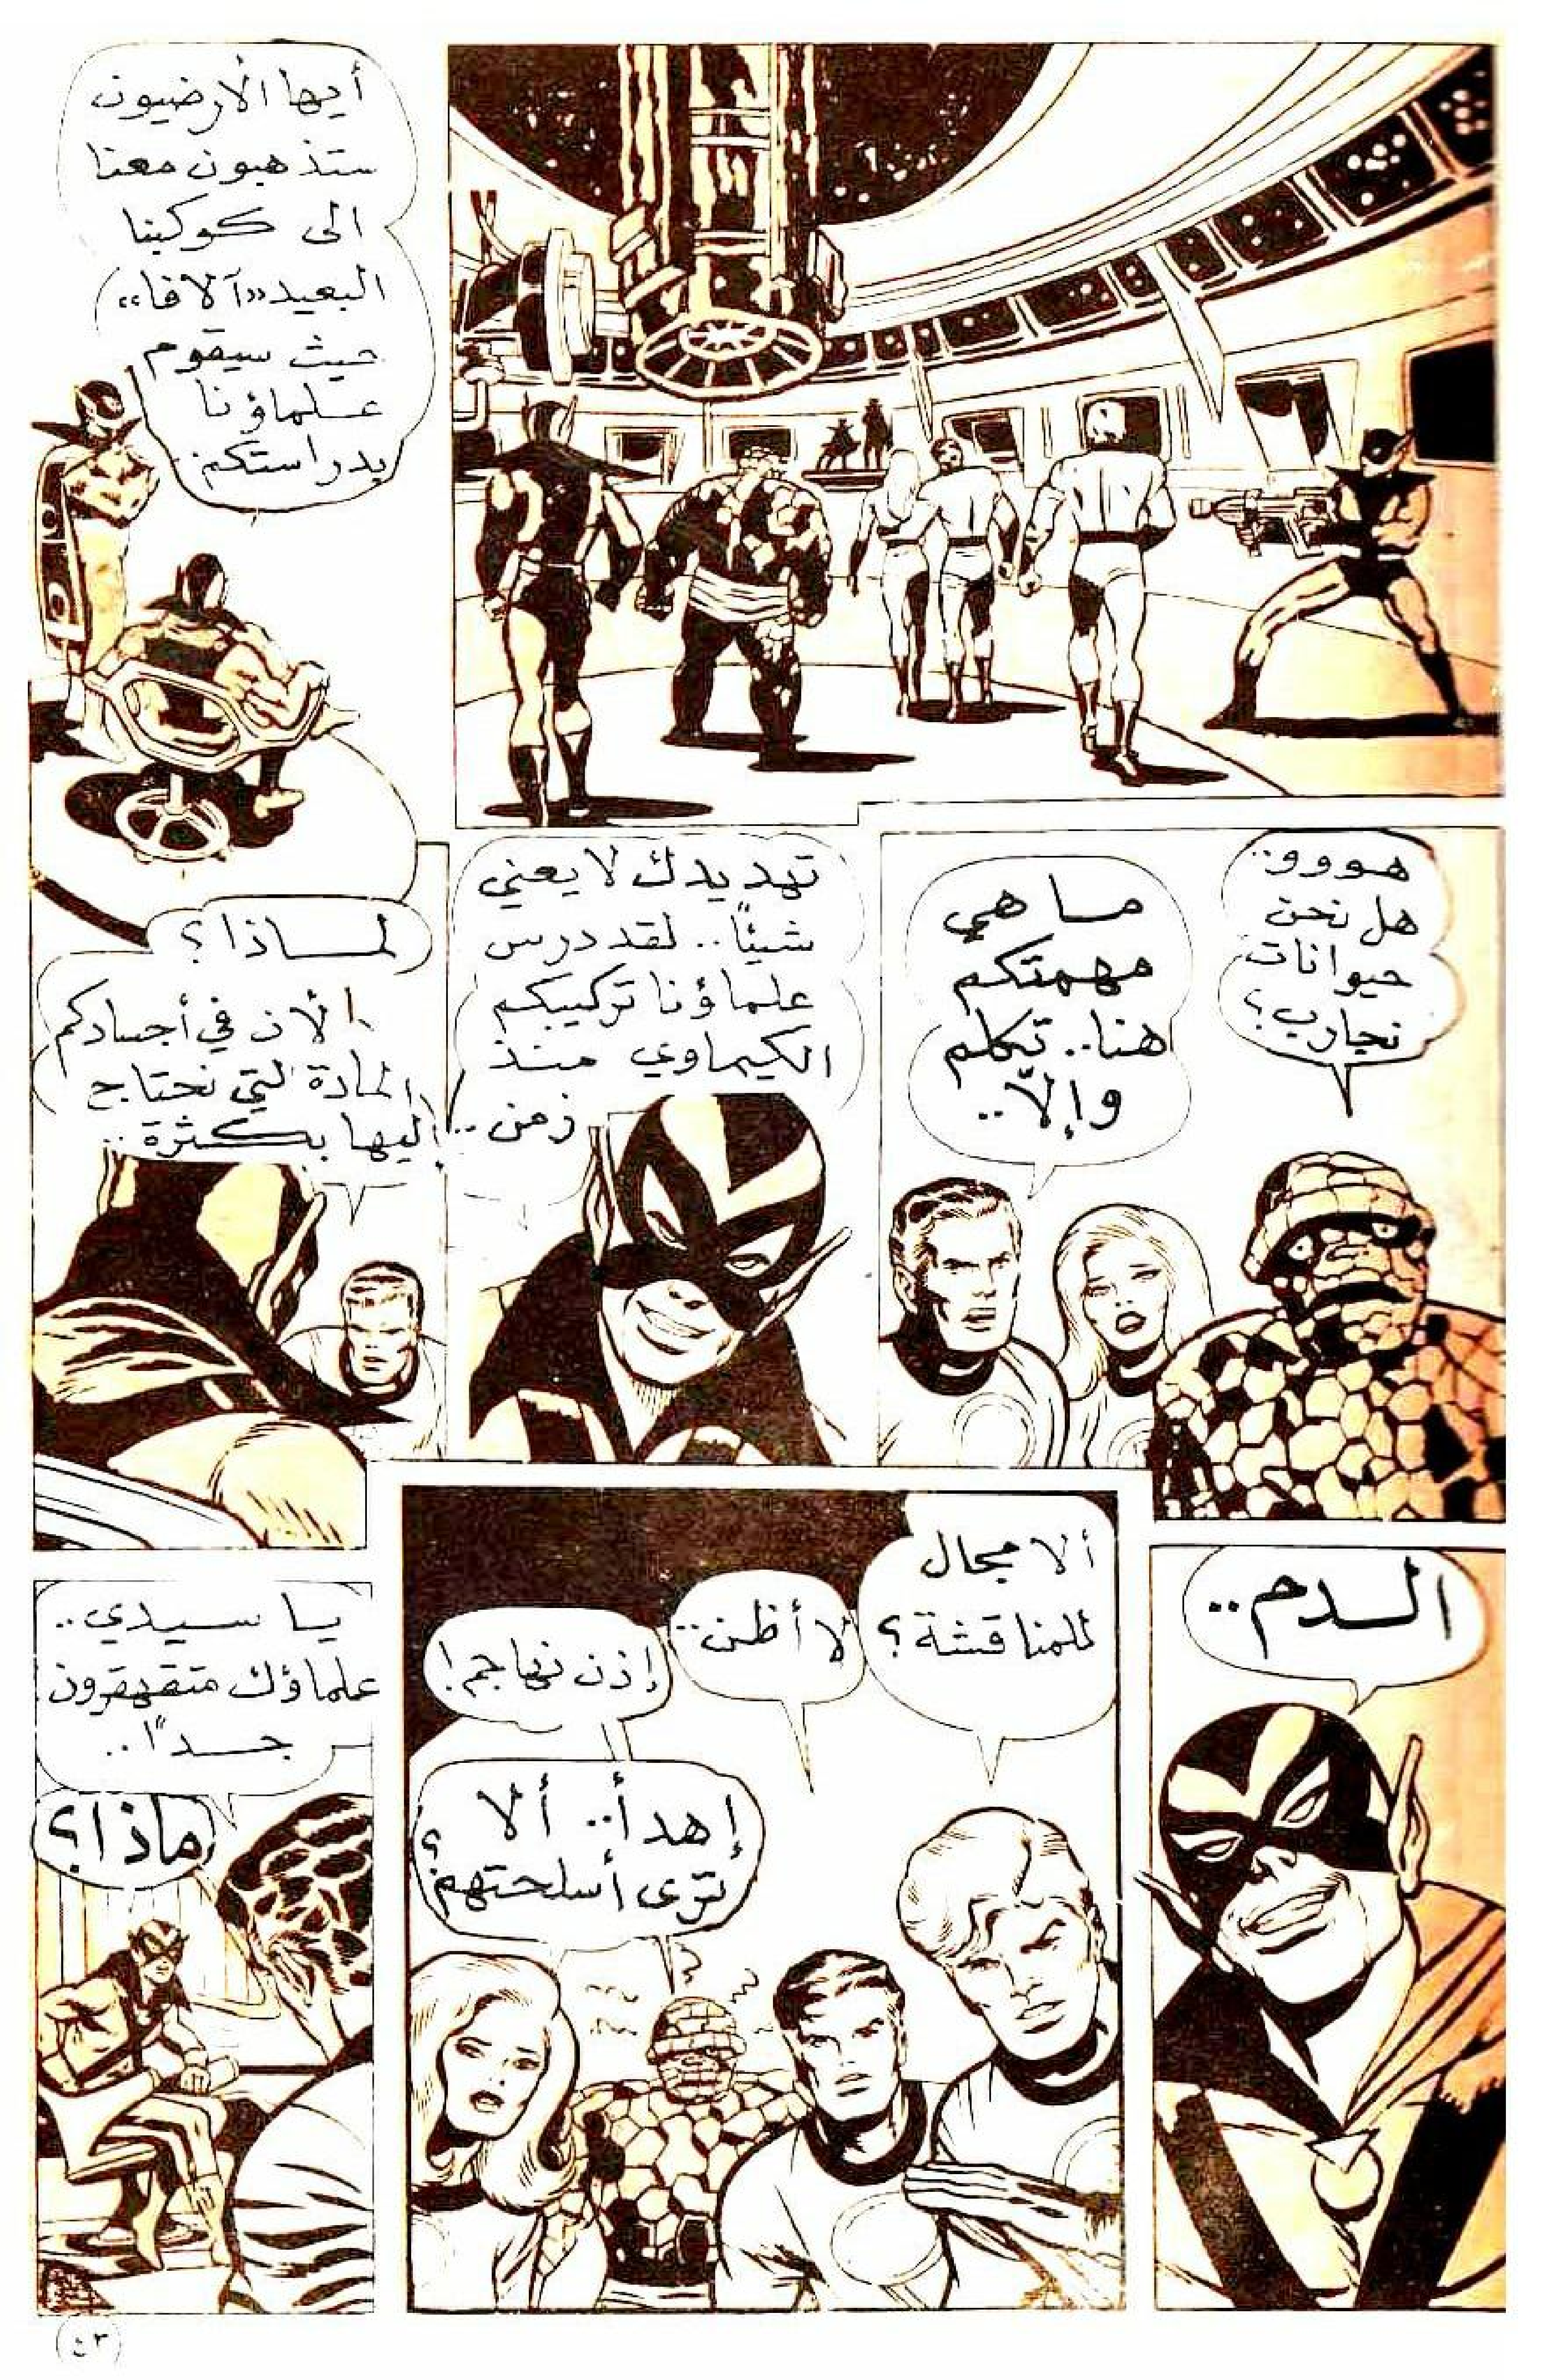 أيها الأرضيون
ستذهبون معنا
الى كوكبنا
البعيد «آلافا»
حيث سيقوم
علماؤنا
بدراستكم..
هووو..
هل نحن
حيوانات
تجارب؟
ما هي
مهمتكم
هنا.. تكلم
وإلّا..
تهديدك لا يعني
شيئاً.. لقد درس
علماؤنا تركيبكم
الكيماوي منذ
زمن..
لماذا؟
الأن في أجسادكم
المادة التي نحتاج
إليها بكثرة..
الدم..
ألا مجال
للمناقشة؟
لا أظن..
إذن نهاجم!
إهدأ.. ألا
ترى أسلحتهم؟
يا سيدي..
علماؤك متقهقرون
جداً..
ماذا؟
٤٣